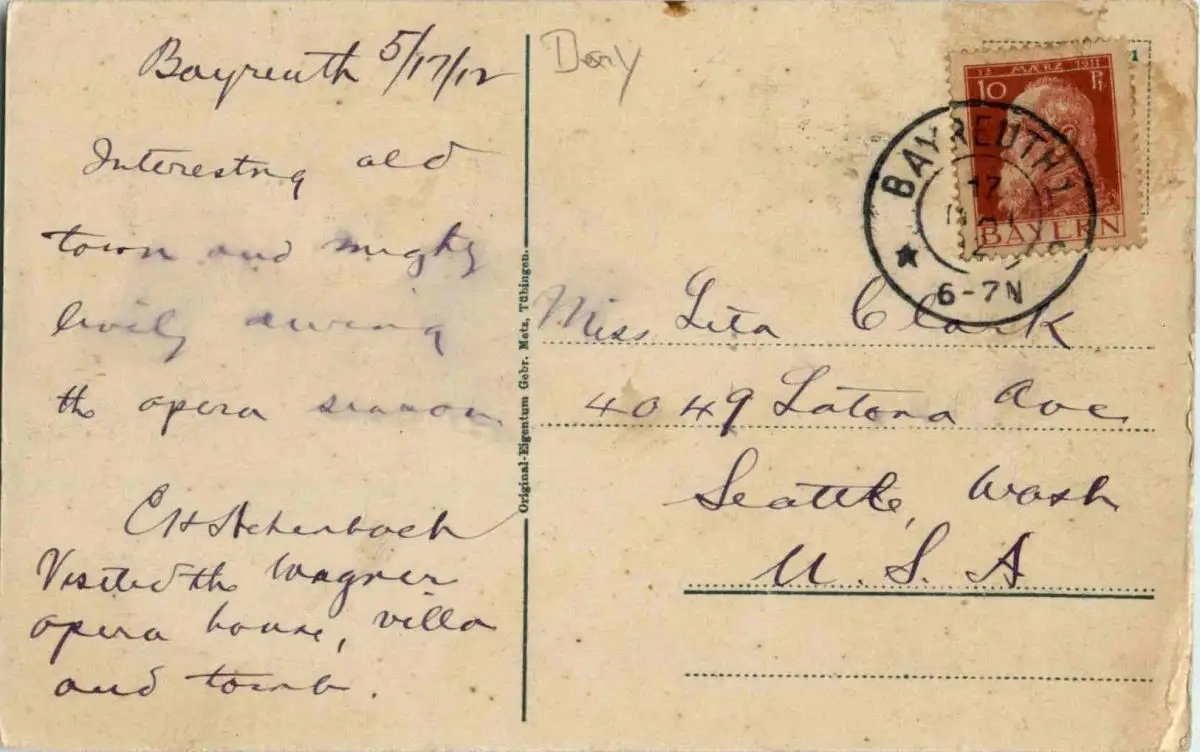 Bayreuth 5/17/12
Interesting old
town and mighty
lively during
the opera season
C H Achenbach
Visited the Wagner
opera house, villa
and tomb.
Original-Eigentum Gebr. Metz, Tübingen.
12. MÄRZ 1911
10 Pf
BAYERN
BAYREUTH 1
17
MAI
12
6-7N
1
Miss Lita Clark
4049 Latona Ave
Seattle, Wash
U. S. A